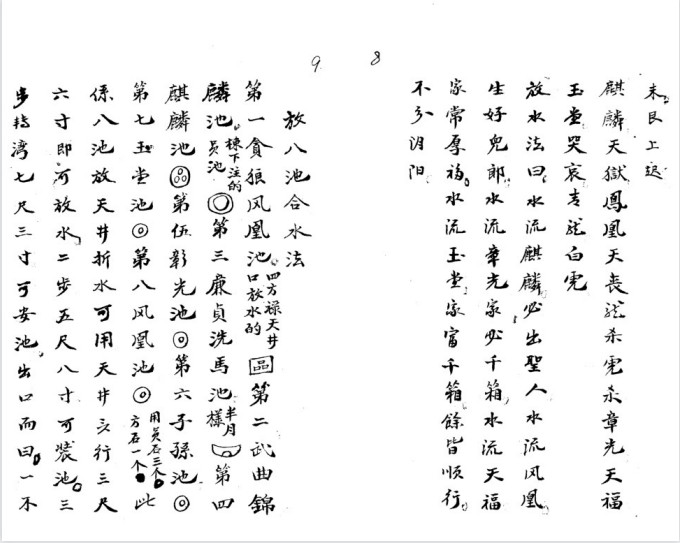 8
未艮上退
麒麟天獄鳳凰天喪 杀 杀章光天福
玉堂哭哀 白虎
放水法曰水流麒麟必出聖人水流凤凰
生好兒郎水流章光家必千箱水流天福
家常厚福水流玉堂家富千箱餘皆順行
不分阴阳
9
放八池合水法
第一貪狼凤凰池四方禄天井口放水的第二武曲錦
麟池员池棟下注的第三廉貞洗馬池半月樣第四
麒麟池第伍彰光池第六子孫池
第七玉堂池第八凤凰池用员石三个方石一个此
係八池放天井折水可用天井 行三尺
六寸即可放水二步五尺八寸可裝池三
步轉湾七尺三寸可安池出口而曰一不